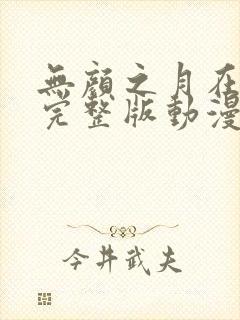 無顏之月在
完整版動漫
今井武夫